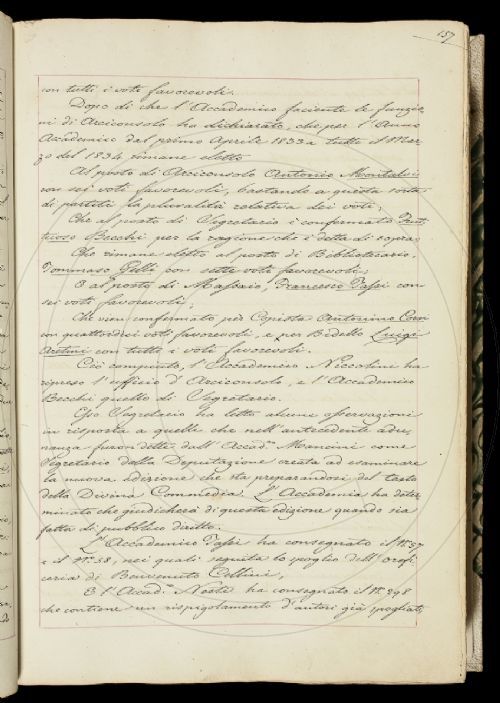 157
con tutti i voti favorevoli.
Dopo di che l'Accademico faciente le funzio-
ni di Arciconsolo ha dichiarato, che per l'Anno
Accademico dal primo Aprile 1833 a tutto il Mar-
zo del 1834 rimane eletto
Al posto di Arciconsolo Antonio
con sei voti favorevoli, bastando a questa sorta
di partiti la pluralità relativa dei voti;
Che al posto di Segretario è confermato Frut-
tuoso Becchi per la ragione che è detta di sopra;
Che rimane eletto al posto di Bibliotecario
Tommaso Gelli con sette voti favorevoli;
E al posto di Massaio, Francesco Tassi con
sei voti favorevoli;
Che vien confermato per Copista Antonino
con quattordici voti favorevoli, e per Bidello Luigi
Aretini con tutti i voti favorevoli.
Ciò compiuto, l'Accademico Niccolini ha
ripreso l'uffizio d'Arciconsolo, e l'Accademico
Becchi quello di Segretario.
Esso Segretario ha letto alcune osservazioni
in risposta a quelle che nell'antecedente adu-
nanza furon dette dall'Accad.co Mancini come
Segretario della Deputazione creata ad esaminare
la nuova edizione che sta preparandosi del testo
della Divina Commedia. L'Accademia ha deter-
minato che giudicherà di questa edizione quando sia
fatta di pubblico diritto.
L'Accademico Tassi ha consegnato il N.° 37
e il N.° 38, nei quali seguita lo spoglio dell'Orefi-
ceria di Benvenuto Cellini,
E l'Accad.co Nesti ha consegnato il N.° 298
che contiene un rispigolamento d'autori già spogliati,